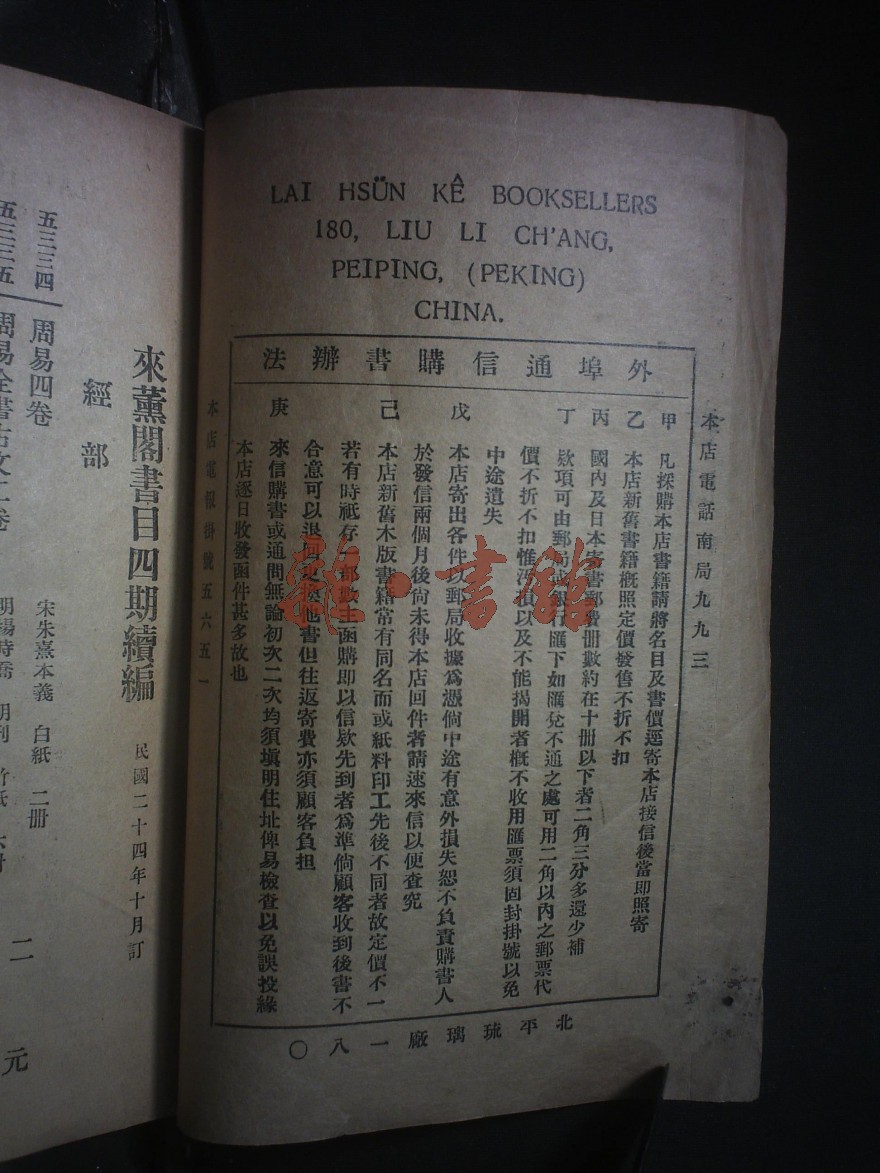 LAI HSÜN KÊ BOOKSELLERS
180, LIU LI CH'ANG,
PEIPING, (PEKING)
CHINA.
本店電話南局九九三
外埠通信購書辦法
甲 凡採購本店書籍請將名目及書價逕寄本店接信後當即照寄
乙 本店新舊書籍概照定價發售不折不扣
丙 國內及日本寄書郵費冊數約在十冊以下者二角三分多還少補
丁 欵項可由郵局或銀行匯下如匯兌不通之處可用二角以內之郵票代
價不折不扣惟污損以及不能揭開者概不收用匯票須固封掛號以免
中途遺失
戊 本店寄出各件以郵局收據爲憑倘中途有意外損失恕不負責購書人
於發信兩個月後尙未得本店回件者請速來信以便查究
己 本店新舊木版書籍常有同名而或紙料印工先後不同者故定價不一
若有時祗存一部數主函購即以信欵先到者爲準倘顧客收到後書不
合意可以退回更換他書但往返寄費亦須顧客負担
庚 來信購書或通問無論初次二次均須塡明住址俾易檢查以免誤投緣
本店逐日收發函件甚多故也
本店電報掛號五六五一
北平琉璃廠一八〇
雜·書館
來薰閣書目四期續編
民國二十四年十月訂
經部
五三三四 周易四卷 宋朱熹本義 白紙 二冊 二元
五三三五 周易全書古文二卷 明楊時喬 明刊 竹紙 六冊